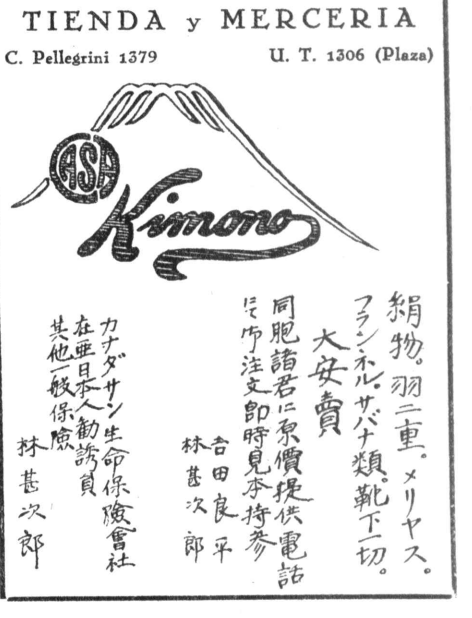 TIENDA y MERCERIA
C. Pellegrini 1379 U. T. 1306 (Plaza)
CASA
Kimono
絹物。羽二重。メリヤス。
フランネル。サバナ類。靴下一切。
大安賣
同胞諸君に原價提供電話
にて御注文即時見本持参
吉田良平
林甚次郎
カナダサン生命保險會社
在亜日本人勧誘員
其他一般保險
林甚次郎